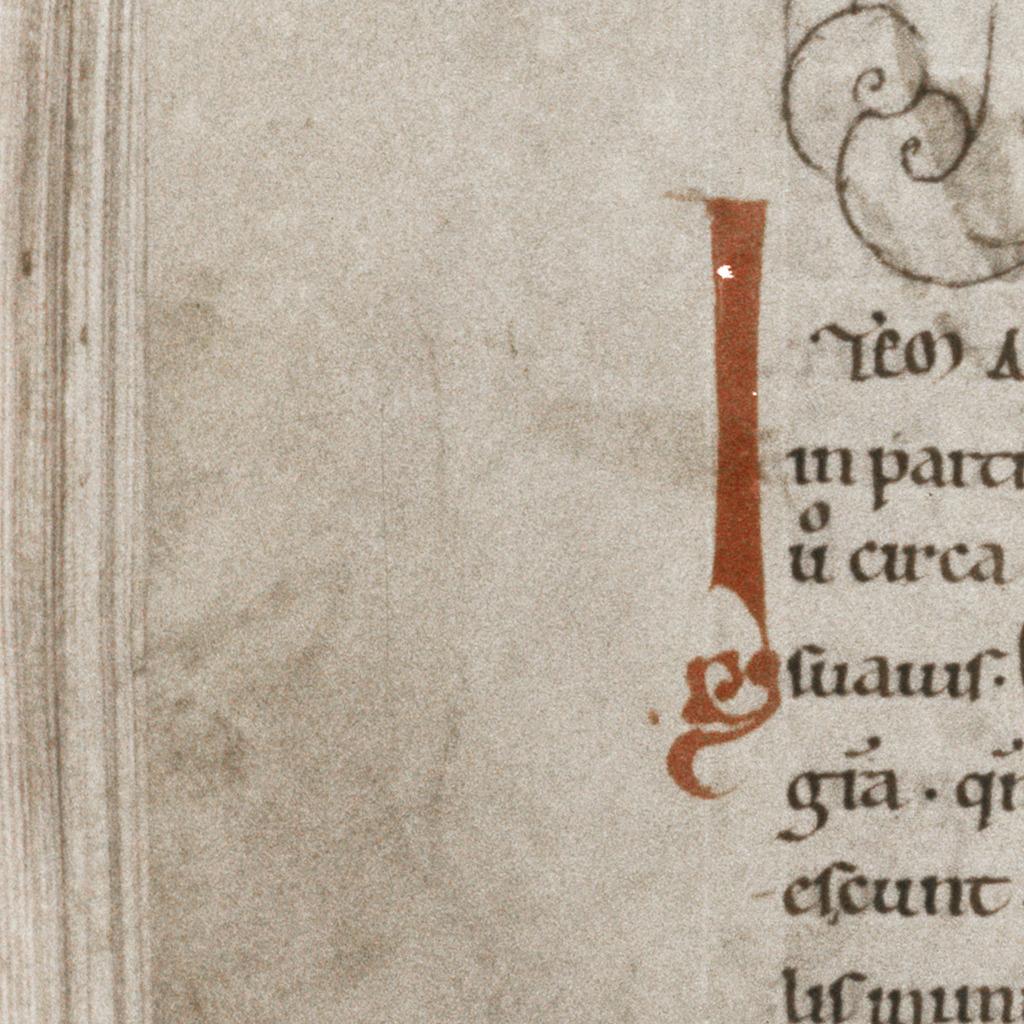 ITEM A
in parti
uͦ circa
suauis.
gīa · qn̄
escunt